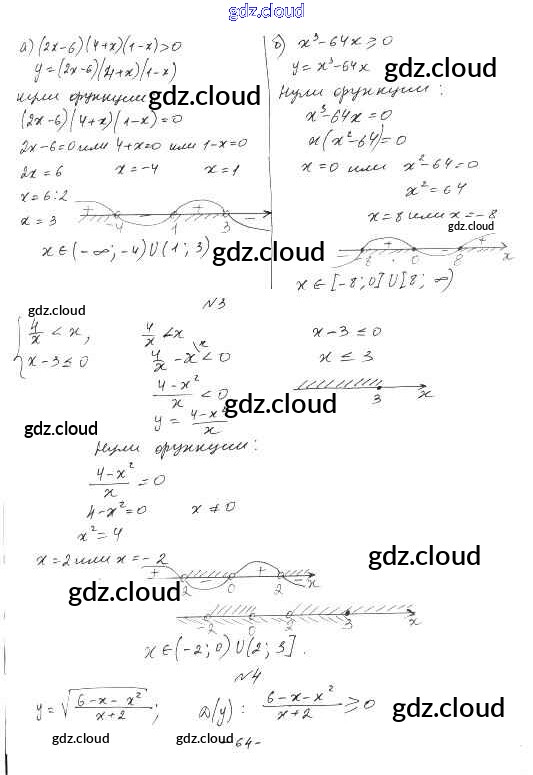 gdz.cloud
а) (2x-6)(4+x)(1-x)>0
y=(2x-6)(4+x)(1-x)
Нули функции
(2x-6)(4+x)(1-x)=0
2x-6=0 или 4+x=0 или 1-x=0
2x=6 x=-4 x=1
x=6:2
x=3
+ - + -
-4 1 3 x
x∈(-∞;-4)∪(1;3)
б) x³-64x≥0
y=x³-64x
gdz.cloud
gdz.cloud
Нули функции:
x³-64x=0
x(x²-64)=0
x=0 или x²-64=0
x²=64
x=8 или x=-8
- + - +
-8 0 8 x
x∈[-8;0]∪[8;∞)
gdz.cloud
N3
gdz.cloud
{ 4/x < x,
x-3≤0
4/x < x
4/x - x < 0
(4-x²)/x < 0
y = (4-x²)/x
x-3≤0
x≤3
3 x
gdz.cloud
gdz.cloud
Нули функции:
(4-x²)/x = 0
4-x²=0 x≠0
x²=4
x=2 или x=-2
+ - + -
-2 0 2 x
gdz.cloud
gdz.cloud
-2 0 2 3 x
x∈(-2;0)∪(2;3].
N4
y=√((6-x-x²)/(x+2)); D(y): (6-x-x²)/(x+2) ≥0
gdz.cloud
gdz.cloud
gdz.cloud
-64-